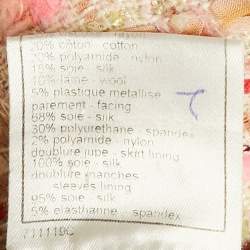 20% coton - cotton
20% polyamide - nylon
15% soie - silk
10% laine - wool
5% plastique metallise
parement - facing
68% soie - silk
30% polyurethane - spandex
2% polyamide - nylon
doublure jupe - skirt lining
100% soie - silk
doublure manches
sleeves lining
95% soie - silk
5% elasthanne - spandex